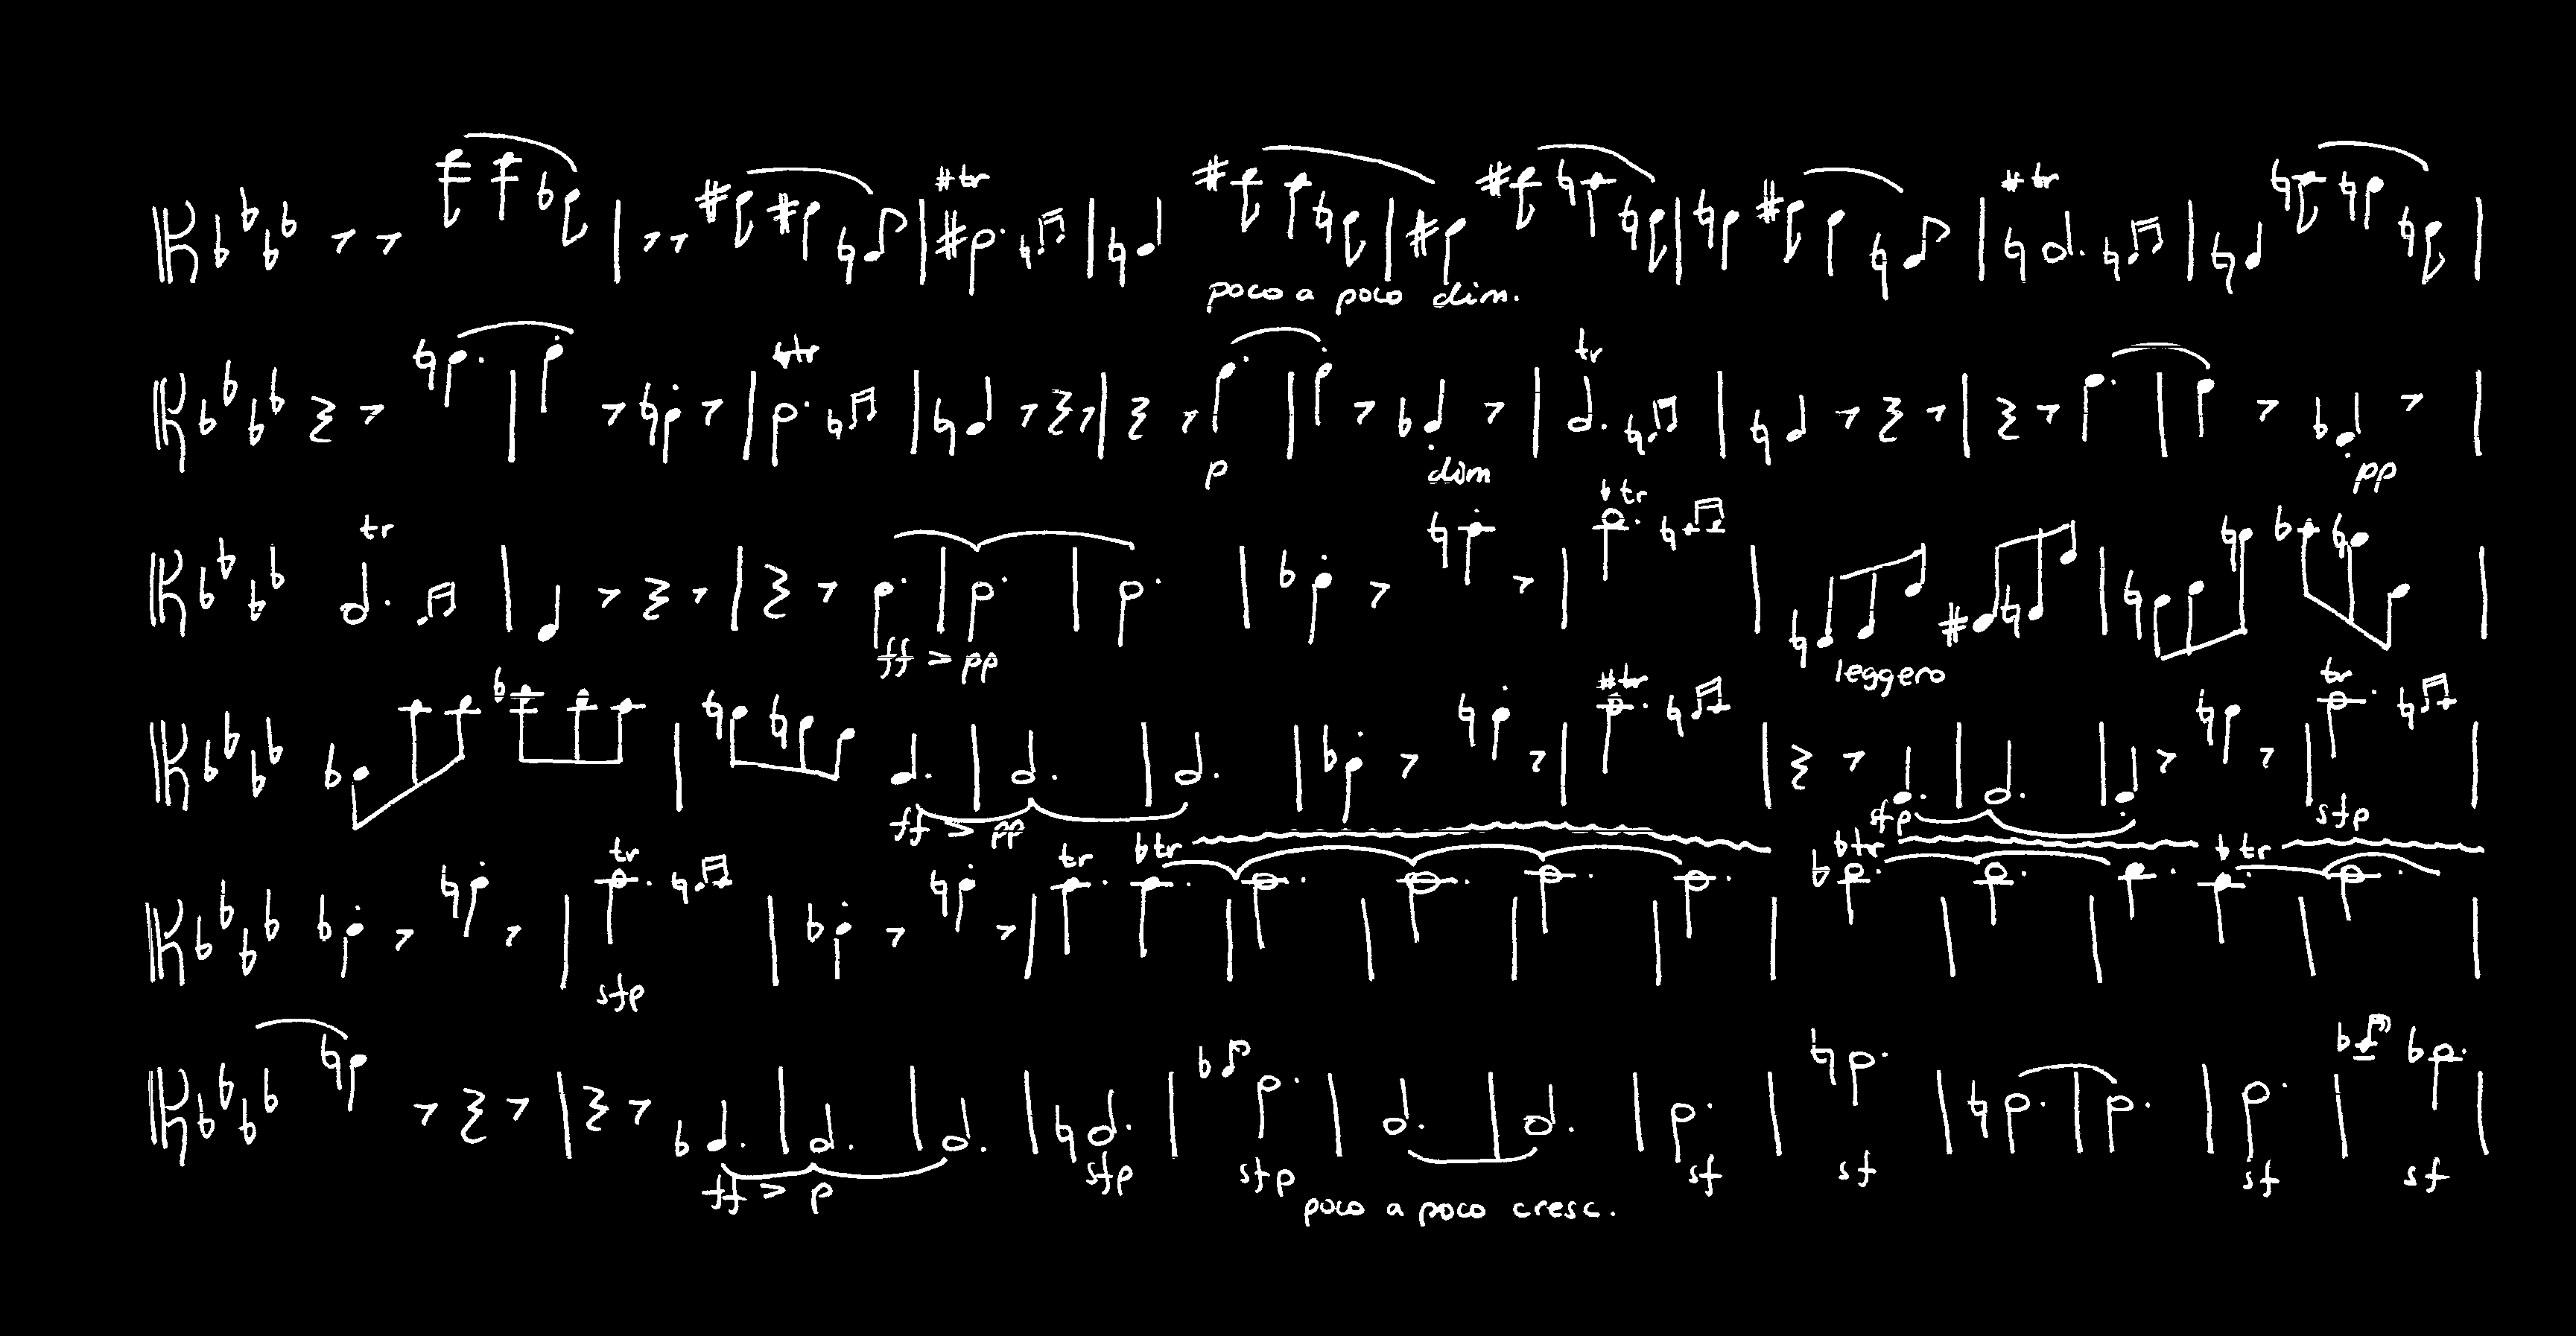 tr
poco a poco dim.
tr
tr
tr
p
dim
pp
tr
tr
ff > pp
leggero
tr
tr
ff > pp
sfp
sfp
tr
tr
tr
tr
tr
sfp
ff > p
sfp
sfp
poco a poco cresc.
sf
sf
sf
sf